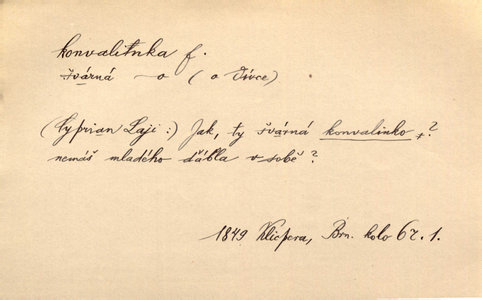 konvalinka f.
švárná -o- (o dívce)
(Cyprian Laji:) Jak, ty švárná konvalinko +?
nemáš mladého ďábla v sobě?
1849 Klicpera, Brn. kolo 67. 1.